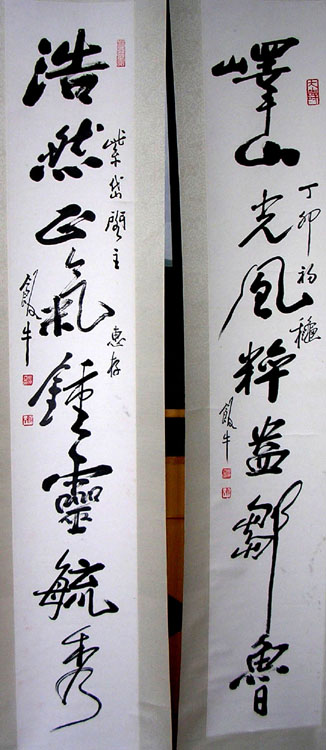 嶧山光風粹益鄒魯
丁卯初穐
飯牛
浩然正氣鍾靈毓秀
紫岱閣主 惠存
飯牛